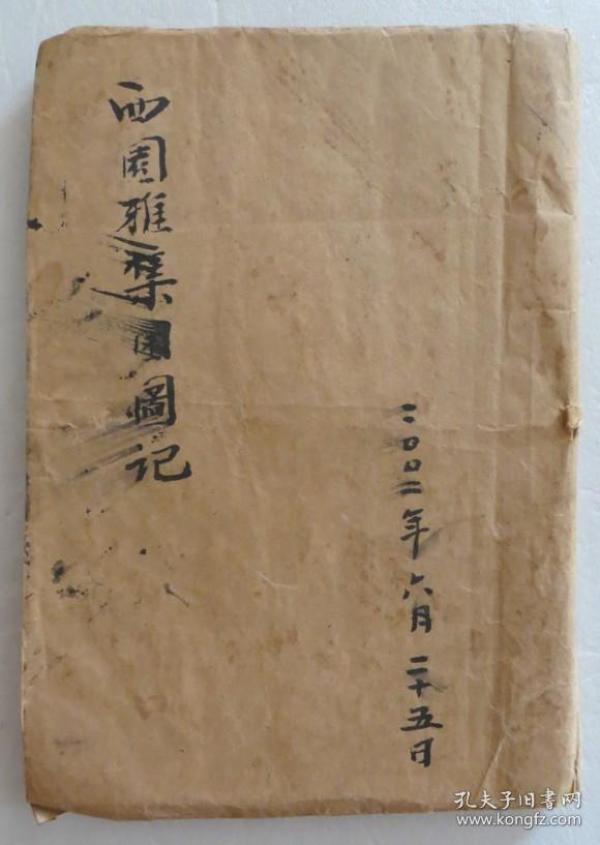 西園雅集圖記
二〇〇二年六月二十五日
孔夫子旧书网
www.kongfz.com